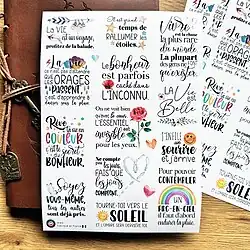 La VIE
est un voyage,
profitez de la balade.
La VIE
ce n'est pas d'attendre
que les
ORAGES
PASSENT,
c'est d'apprendre à
danser sous la pluie.
Rêve
ta vie en
COULEUR
c'est le secret
du
BONHEUR.
Soyez
VOUS-MÊME,
tous les autres
sont déjà pris.
Il est grand
temps de
RALLUMER
les
étoiles.
Le bonheur
est parfois
caché dans
L'INCONNU.
On ne voit bien
qu'avec
le cœur,
L'ESSENTIEL
est
invisible
pour les yeux.
Ne compte
pas les jours,
fais que
les jours
comptent.
TOURNE-TOI VERS LE
SOLEIL
ET L'OMBRE SERA DERRIÈRE TOI.
Vivre
est la chose
la plus rare
du monde
la plupart
des gens ne
font
qu'exister.
LA VIE
est
Belle
sourire
et j'arrive
Pour pouvoir
CONTEMPLER
UN
ARC-EN-CIEL
il faut d'abord
endurer la pluie.